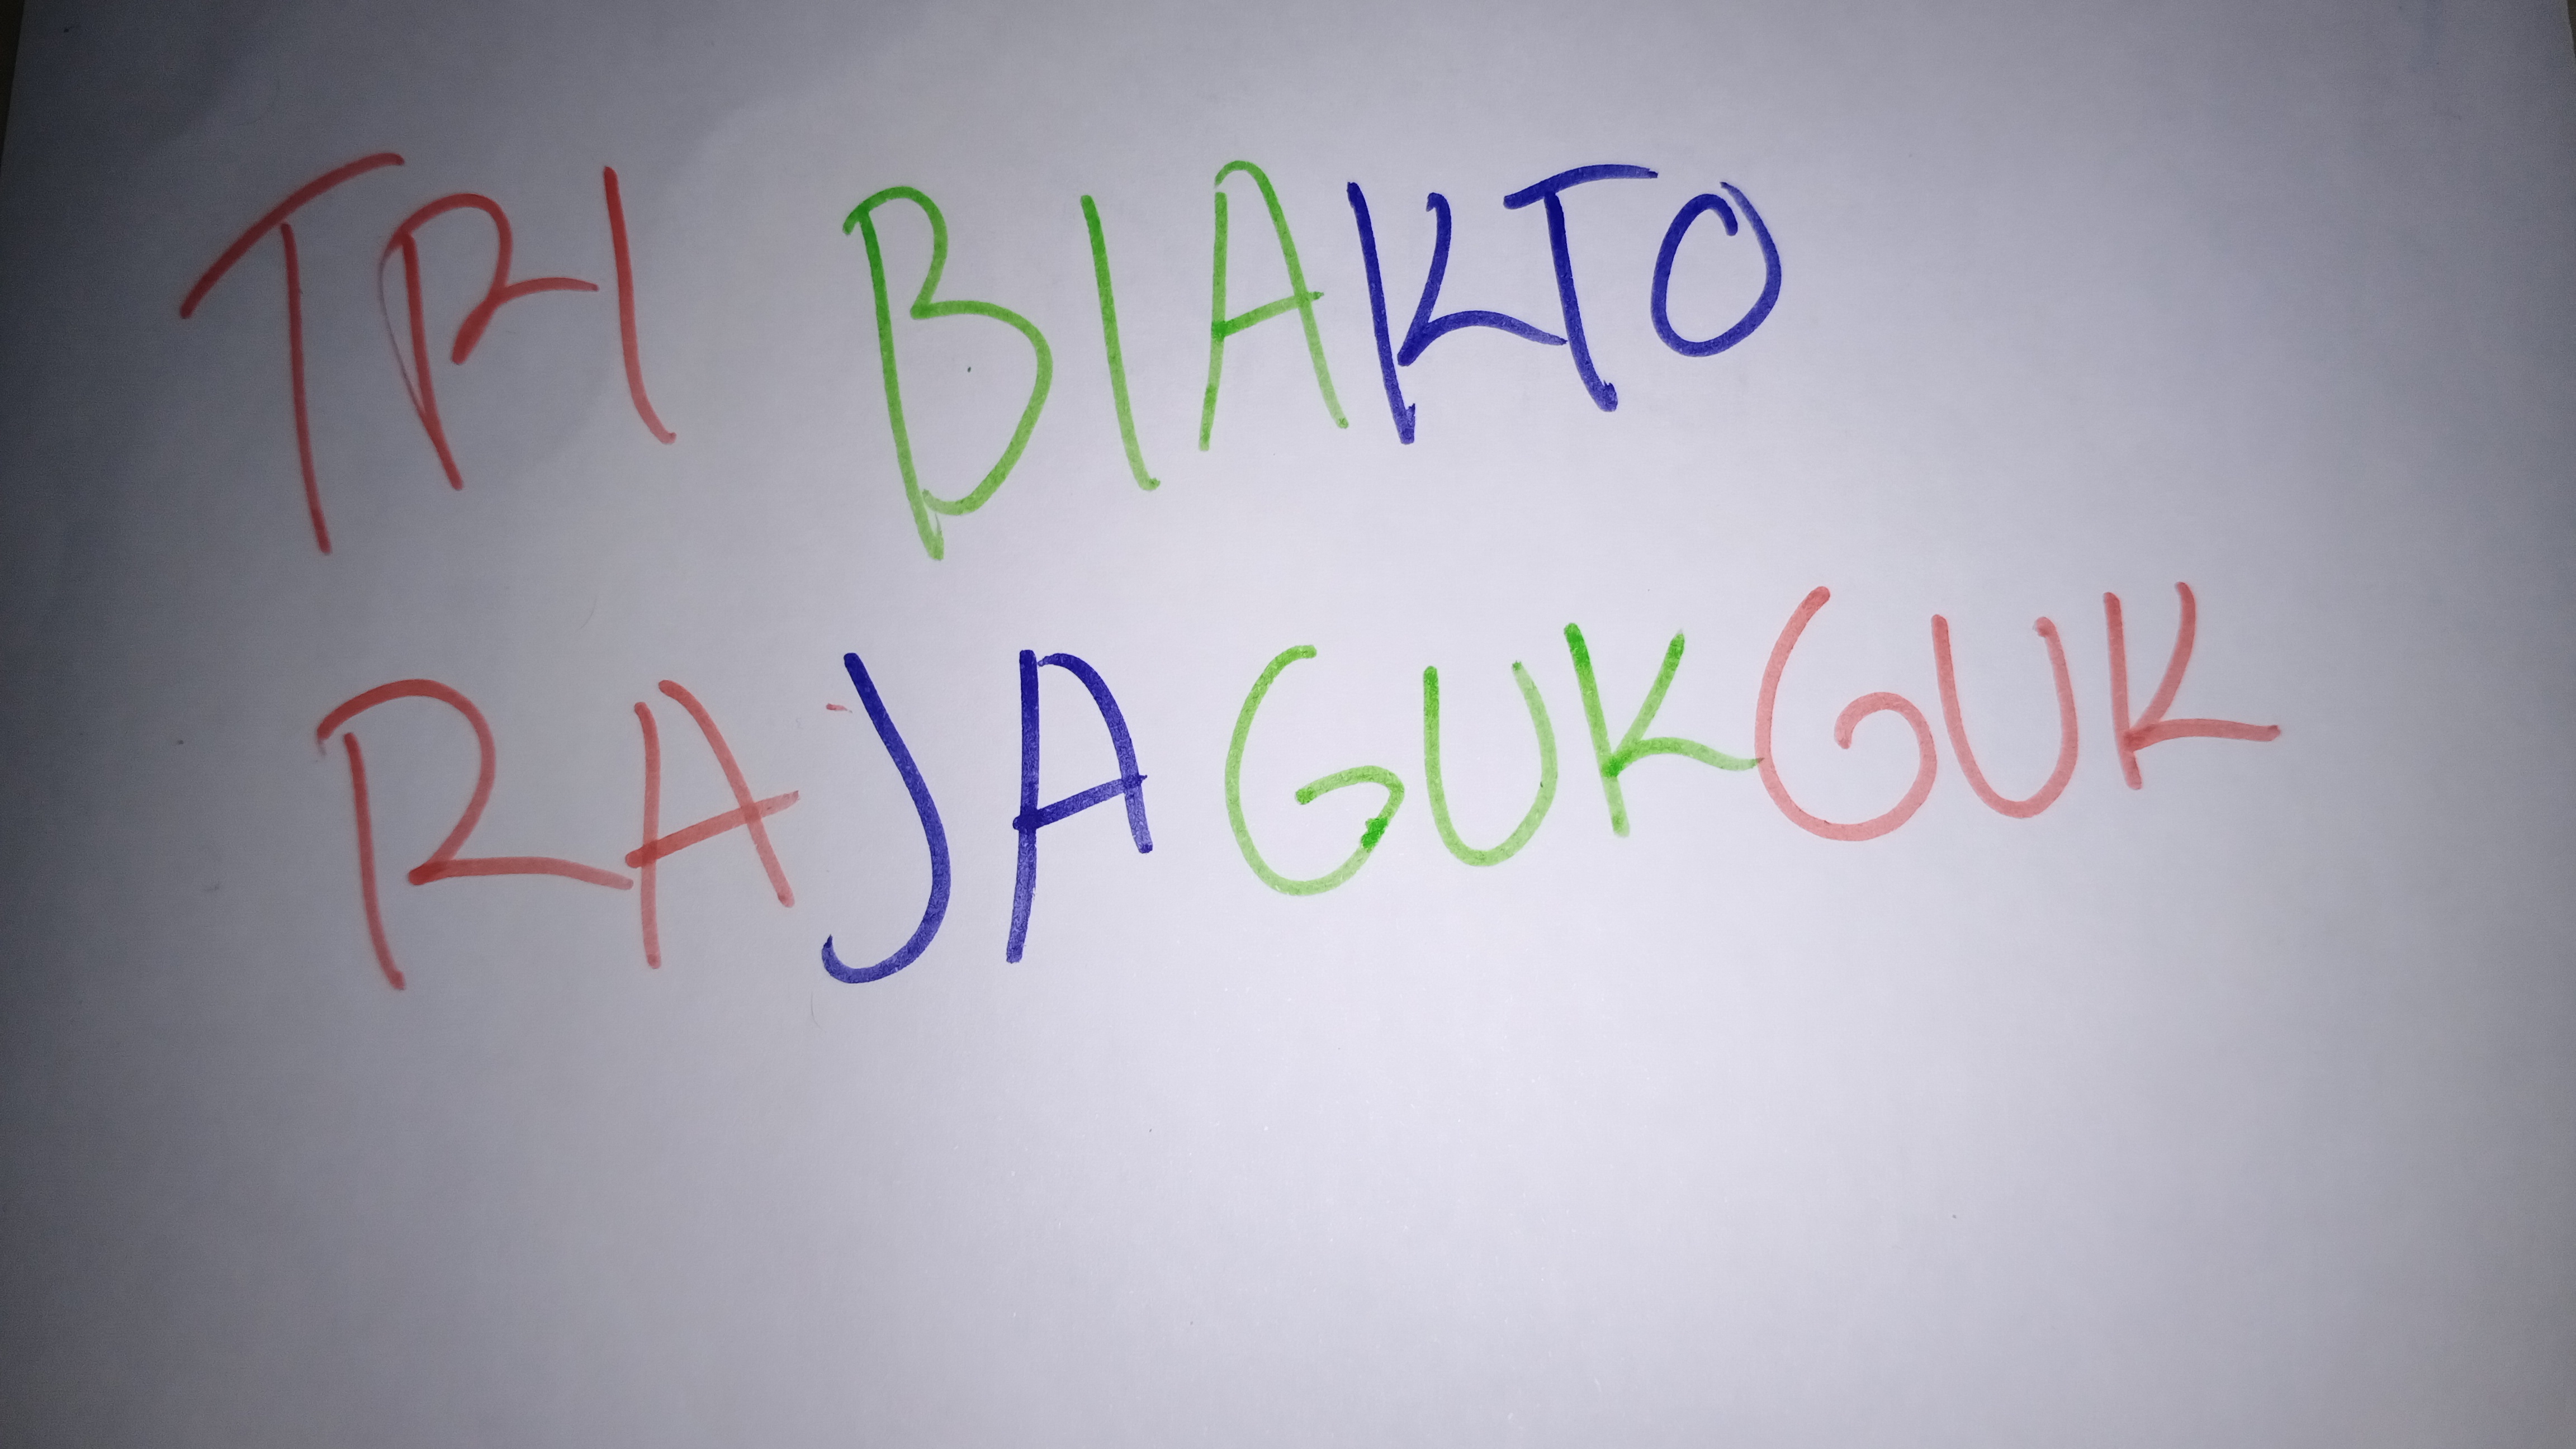 TRI BIAKTO
RAJA GUKGUK